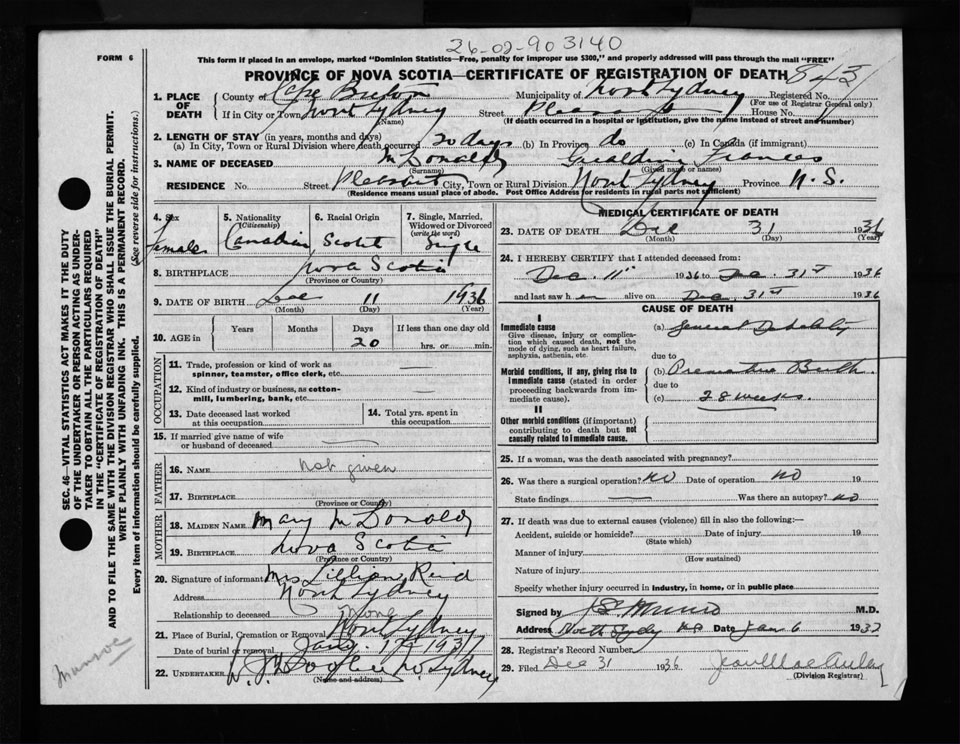 26-02-90 3140
FORM 6
This form if placed in an envelope, marked "Dominion Statistics—Free, penalty for improper use $300," and properly addressed will pass through the mail "FREE"
PROVINCE OF NOVA SCOTIA—CERTIFICATE OF REGISTRATION OF DEATH 843
1. PLACE OF DEATH
County of Cape Breton Municipality of North Sydney Registered No.
(For use of Registrar General only)
If in City or Town North Sydney Street House No.
(Name) (If death occurred in a hospital or institution, give the name instead of street and number)
2. LENGTH OF STAY (in years, months and days)
(a) In City, Town or Rural Division where death occurred 20 days (b) In Province do (c) In Canada (if immigrant)
3. NAME OF DECEASED McDonald Geraldine Frances
(Surname) (Given name or names)
RESIDENCE No. Street Pleasant City, Town or Rural Division North Sydney Province N.S.
(Residence means usual place of abode. Post Office Address for residents in rural parts not sufficient)
4. Sex
Female
5. Nationality
(Citizenship)
Canadian
6. Racial Origin
Scotch
7. Single, Married, Widowed or Divorced
(write the word)
Single
8. BIRTHPLACE Nova Scotia
(Province or Country)
9. DATE OF BIRTH Dec 11 1936
(Month) (Day) (Year)
10. AGE in
Years Months Days If less than one day old
20 hrs. or min.
OCCUPATION
11. Trade, profession or kind of work as
spinner, teamster, office clerk, etc. —
12. Kind of industry or business, as cotton-
mill, lumbering, bank, etc. —
13. Date deceased last worked
at this occupation
14. Total yrs. spent in
this occupation
15. If married give name of wife
or husband of deceased —
FATHER
16. NAME not given
17. BIRTHPLACE
(Province or Country)
MOTHER
18. MAIDEN NAME Mary McDonald
19. BIRTHPLACE Nova Scotia
(Province or Country)
20. Signature of informant Mrs Lillian Reid
Address North Sydney
Relationship to deceased None
21. Place of Burial, Cremation or Removal North Sydney
Date of burial or removal Jany. 1st 1937
22. UNDERTAKER No Sydney
(Name and address)
MEDICAL CERTIFICATE OF DEATH
23. DATE OF DEATH Dec 31 1936
(Month) (Day) (Year)
24. I HEREBY CERTIFY that I attended deceased from:
Dec. 11th 1936 to Dec. 31st 1936
and last saw h er alive on Dec. 31st 1936
CAUSE OF DEATH
I
Immediate cause
Give disease, injury or complication which caused death, not the mode of dying, such as heart failure, asphyxia, asthenia, etc.
(a) General Debility
due to
Morbid conditions, if any, giving rise to immediate cause (stated in order proceeding backwards from immediate cause).
(b) Premature Birth
due to
(c) 28 weeks.
II
Other morbid conditions (if important) contributing to death but not causally related to immediate cause.
25. If a woman, was the death associated with pregnancy?
26. Was there a surgical operation? No Date of operation No 19
State findings — Was there an autopsy? No
27. If death was due to external causes (violence) fill in also the following:—
Accident, suicide or homicide? Date of injury 19
(State which)
Manner of injury
(How sustained)
Nature of injury
Specify whether injury occurred in industry, in home, or in public place
Signed by Munro M.D.
Address North Sydney NS Date Jan 6 1937
28. Registrar's Record Number
29. Filed Dec 31 1936
(Division Registrar)
SEC. 46—VITAL STATISTICS ACT MAKES IT THE DUTY
OF THE UNDERTAKER OR PERSON ACTING AS UNDER-
TAKER TO OBTAIN ALL THE PARTICULARS REQUIRED
IN THE "CERTIFICATE OF REGISTRATION OF DEATH"
AND TO FILE THE SAME WITH THE DIVISION REGISTRAR WHO SHALL ISSUE THE BURIAL PERMIT.
WRITE PLAINLY WITH UNFADING INK. THIS IS A PERMANENT RECORD.
Every item of information should be carefully supplied. (See reverse side for instructions.)
Munroe